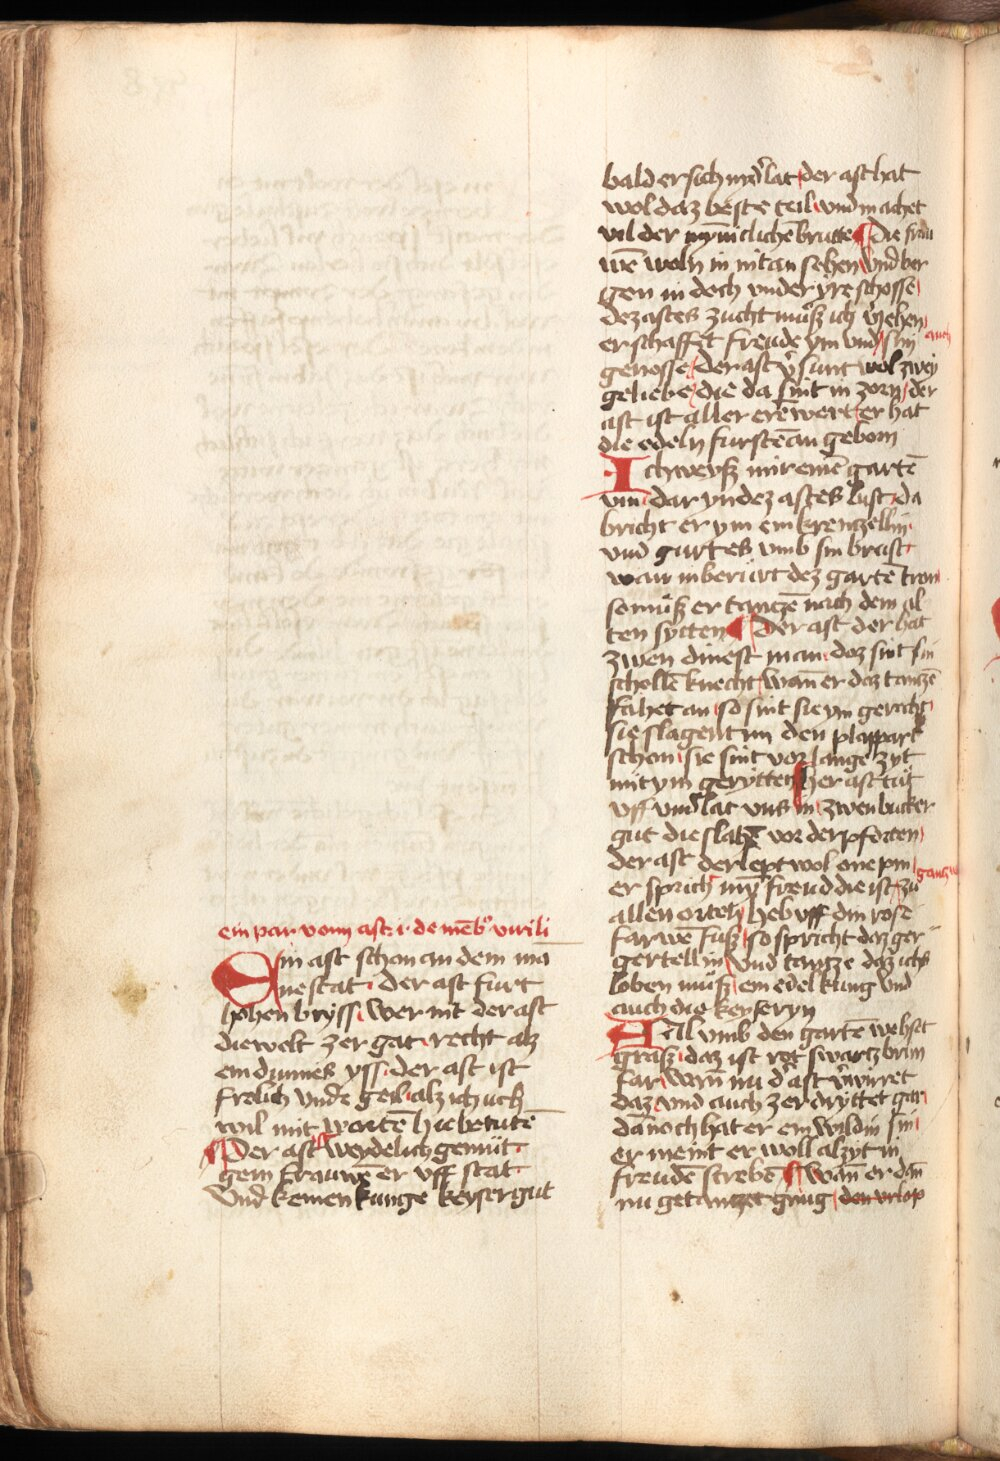 ein par vonn ast · i · de mēbro virili
Ein ast schon an dem ma
ne stat · der ast furt
hohen bryss · wer nit der ast
die welt zer gat · recht alz
ein dunnes yss · der ast ist
frelich vnde geil · alz ich uch
wil mit wortē hie betutē
Der ast weydelich gemüt ·
gern frauwē er vff stat ·
Vnd keinen kunge keyser gut
bald er sich nider lat · der ast hat
wol daz beste teil · vnd machet
vil der mynniclichē brutte Die frau
wē woln in nit an sehen vnd ber
gen in doch vnder yre schosse
dez astes zucht muß ich v̄iehen
er schaffet freude ym vnd sin auch
genosse · der ast v̄sunt wol zwey
geliebe · die da sint in zorn · der
ast ist aller erē wert · er hat
die edeln furstē an geborn
Ich weyß mir einē gartē
vin · dar yn dez astes lust · da
bricht er ym ein krentzellin ·
vnd gurtes vmb sin brust ·
wan in berürt dez gartē tron
so muß er tantzē nach dem al
ten sytten Der ast der hat
zwen dinest man · daz sint sin
schollē knecht · wan er daz tantzē
fahet an · so sint sie ym gerecht
sie slagent im den plappart
schon · sie sint vor lange zyt
mit ym gerytten her ast tüt
vff vnd lat vns in · zwen bucker
gut die slahē vor der pforten
der ast der lept wol one pin gantz
er sprich myn freud die ist zu
allen orten heb vff din rose
farwē fuß · so spricht daz ger
gertellin vnd tantze daz ichs
loben muß · ein edel kung vnd
auch die keyseryn
All vmb den gartē wehst
graß · daz ist rot swartz brun
far · wan nu d' ast v̄wirret
daz · vnd auch zerdryttet gar
dānoch hat er ein wildin sin
er meint er woll alzyt in
freudē strebē wān er dān
nu getantzet gnug · den vrlop